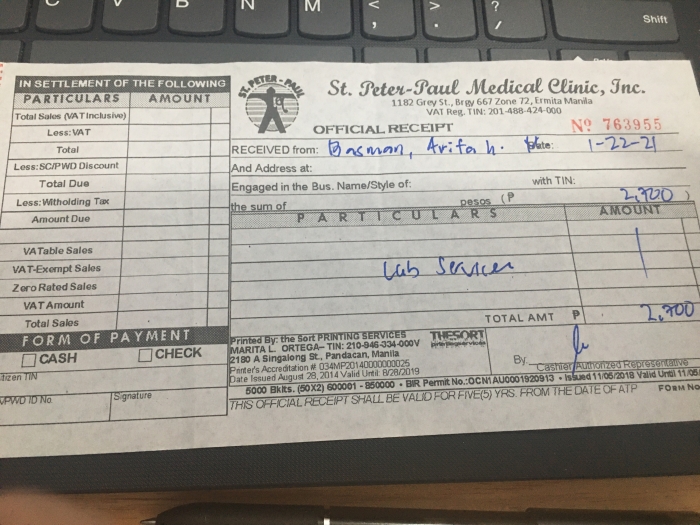 N M < , > . ? / Shift
IN SETTLEMENT OF THE FOLLOWING
PARTICULARS AMOUNT
Total Sales (VAT Inclusive)
Less: VAT
Total
Less: SC/PWD Discount
Total Due
Less: Witholding Tax
Amount Due
VATable Sales
VAT-Exempt Sales
Zero Rated Sales
VAT Amount
Total Sales
FORM OF PAYMENT
CASH CHECK
tizen TIN
PWD ID No Signature
ST. PETER-PAUL
St. Peter-Paul Medical Clinic, Inc.
1182 Grey St., Brgy 667 Zone 72, Ermita Manila
VAT Reg. TIN: 201-488-424-000
OFFICIAL RECEIPT Nº 763955
RECEIVED from: Basman, Arifah. Date: 1-22-21
And Address at:
Engaged in the Bus. Name/Style of: with TIN:
the sum of pesos (₱ 2,700 )
PARTICULARS AMOUNT
Lab Services
TOTAL AMT ₱ 2,700
By:
Cashier/Authorized Representative
Printed By: the Sort PRINTING SERVICES THESORT
MARITA L. ORTEGA- TIN: 210-946-334-000V
2180 A Singalong St., Pandacan, Manila
Printer's Accreditation # 034MP20140000000025
Date Issued August 28, 2014 Valid Until 8/28/2019
5000 Bkits. (50X2) 600001 - 850000 • BIR Permit No.:OCN1AU0001920913 • Issued 11/06/2018 Valid Until 11/05/
THIS OFFICIAL RECEIPT SHALL BE VALID FOR FIVE(5) YRS. FROM THE DATE OF ATP FORM No